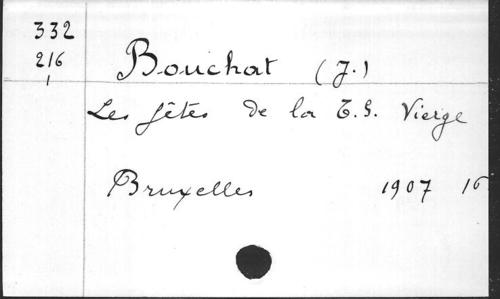 332
216
1
Bouchat (J.)
Les fêtes de la T. S. Vierge
Bruxelles 1907 16